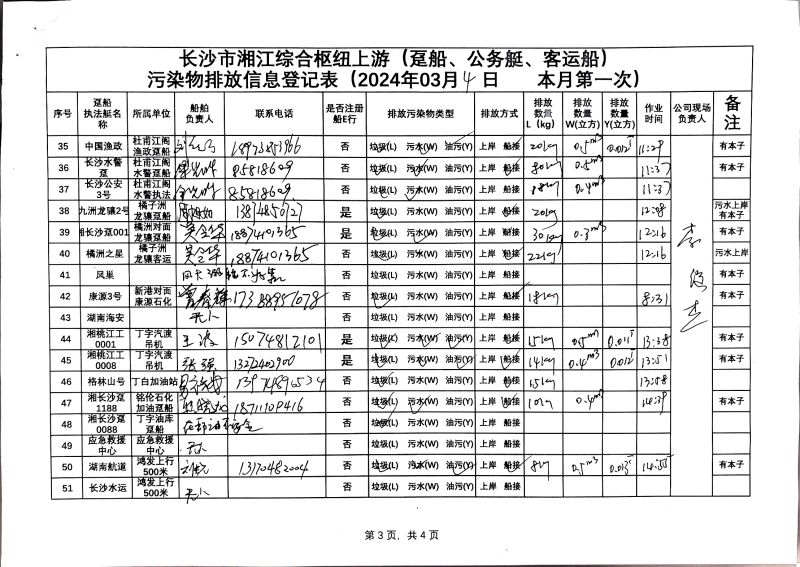 长沙市湘江综合枢纽上游（趸船、公务艇、客运船）
污染物排放信息登记表（2024年03月4日 本月第一次）
序号 趸船执法艇名称 所属单位 船舶负责人 联系电话 是否注册船E行 排放污染物类型 排放方式 排放数量L（kg） 排放数量W(立方) 排放数量Y(立方) 作业时间 公司现场负责人 备注
35 中国渔政 杜甫江阁渔政趸船 18973853966 否 垃圾(L) 污水(W) 油污(Y) 上岸 船接 20kg 0.5m³ 0.012t 11:29 有本子
36 长沙水警趸 杜甫江阁水警趸船 85818609 否 垃圾(L) 污水(W) 油污(Y) 上岸 船接 80kg 0.5m³ 11:37 有本子
37 长沙公安3号 杜甫江阁水警执法 85818609 否 垃圾(L) 污水(W) 油污(Y) 上岸 船接 18kg 0.4m³ 11:37 有本子
38 九洲龙骧2号 橘子洲龙骧趸船 13874850727 是 垃圾(L) 污水(W) 油污(Y) 上岸 船接 20kg 污水上岸有本子
39 湘长沙趸001 橘洲对面龙骧趸船 吴金华 18874101365 是 垃圾(L) 污水(W) 油污(Y) 上岸 船接 30kg 0.3m³ 12:16 有本子
40 橘洲之星 橘子洲龙骧客运 吴金华 18874101365 否 垃圾(L) 污水(W) 油污(Y) 上岸 船接 22kg 12:16 污水上岸
41 风巢 否 垃圾(L) 污水(W) 油污(Y) 上岸 船接 有本子
42 康源3号 新港对面康源石化 17388957078 否 垃圾(L) 污水(W) 油污(Y) 上岸 船接 18kg 8:31 有本子
43 湖南海安 无人 否 垃圾(L) 污水(W) 油污(Y) 上岸 船接
44 湘桃江工0001 丁字汽渡吊机 王波 15074812101 是 垃圾(L) 污水(W) 油污(Y) 上岸 船接 15kg 0.5m³ 0.011t 13:38 有本子
45 湘桃江工0008 丁字汽渡吊机 张强 13272402900 是 垃圾(L) 污水(W) 油污(Y) 上岸 船接 14kg 0.4m³ 0.012t 13:51 有本子
46 格林山号 丁白加油站 13974896534 否 垃圾(L) 污水(W) 油污(Y) 上岸 船接 15kg 13:58
47 湘长沙趸1188 铭伦石化加油趸船 18711109416 否 垃圾(L) 污水(W) 油污(Y) 上岸 船接 10kg 0.4m³ 14:39 有本子
48 湘长沙趸0088 丁字油库趸船 否 垃圾(L) 污水(W) 油污(Y) 上岸 船接
49 应急救援中心 应急救援中心 无人 否 垃圾(L) 污水(W) 油污(Y) 上岸 船接
50 湖南航道 鸿发上行500米 13170482004 否 垃圾(L) 污水(W) 油污(Y) 上岸 船接 8kg 0.5m³ 0.013t 14:55 有本子
51 长沙水运 鸿发上行500米 无人 否 垃圾(L) 污水(W) 油污(Y) 上岸 船接
第 3 页，共 4 页